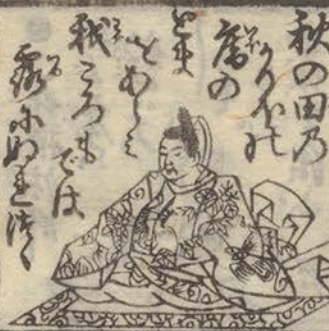 秋の田乃
かりほの
庵の
とま
をあらみ
我ころも
では
露尓ぬ連つゝ